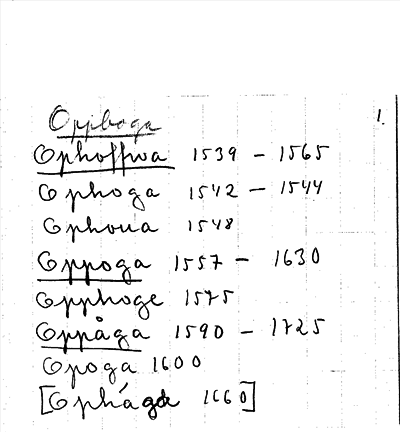 Oppboga 1.
Ophoffwa 1539 – 1565
Ophoga 1542 – 1544
Ophoua 1548
Oppoga 1557 – 1630
Opphoge 1575
Oppåga 1590 – 1725
Opoga 1600
[Ophåga 1660]